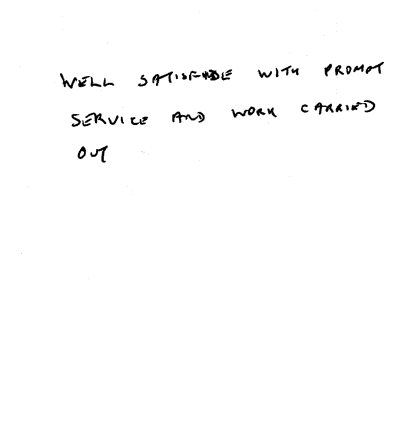 WELL SATISFIDE WITH PROMPT
SERVICE AND WORK CARRIED
OUT